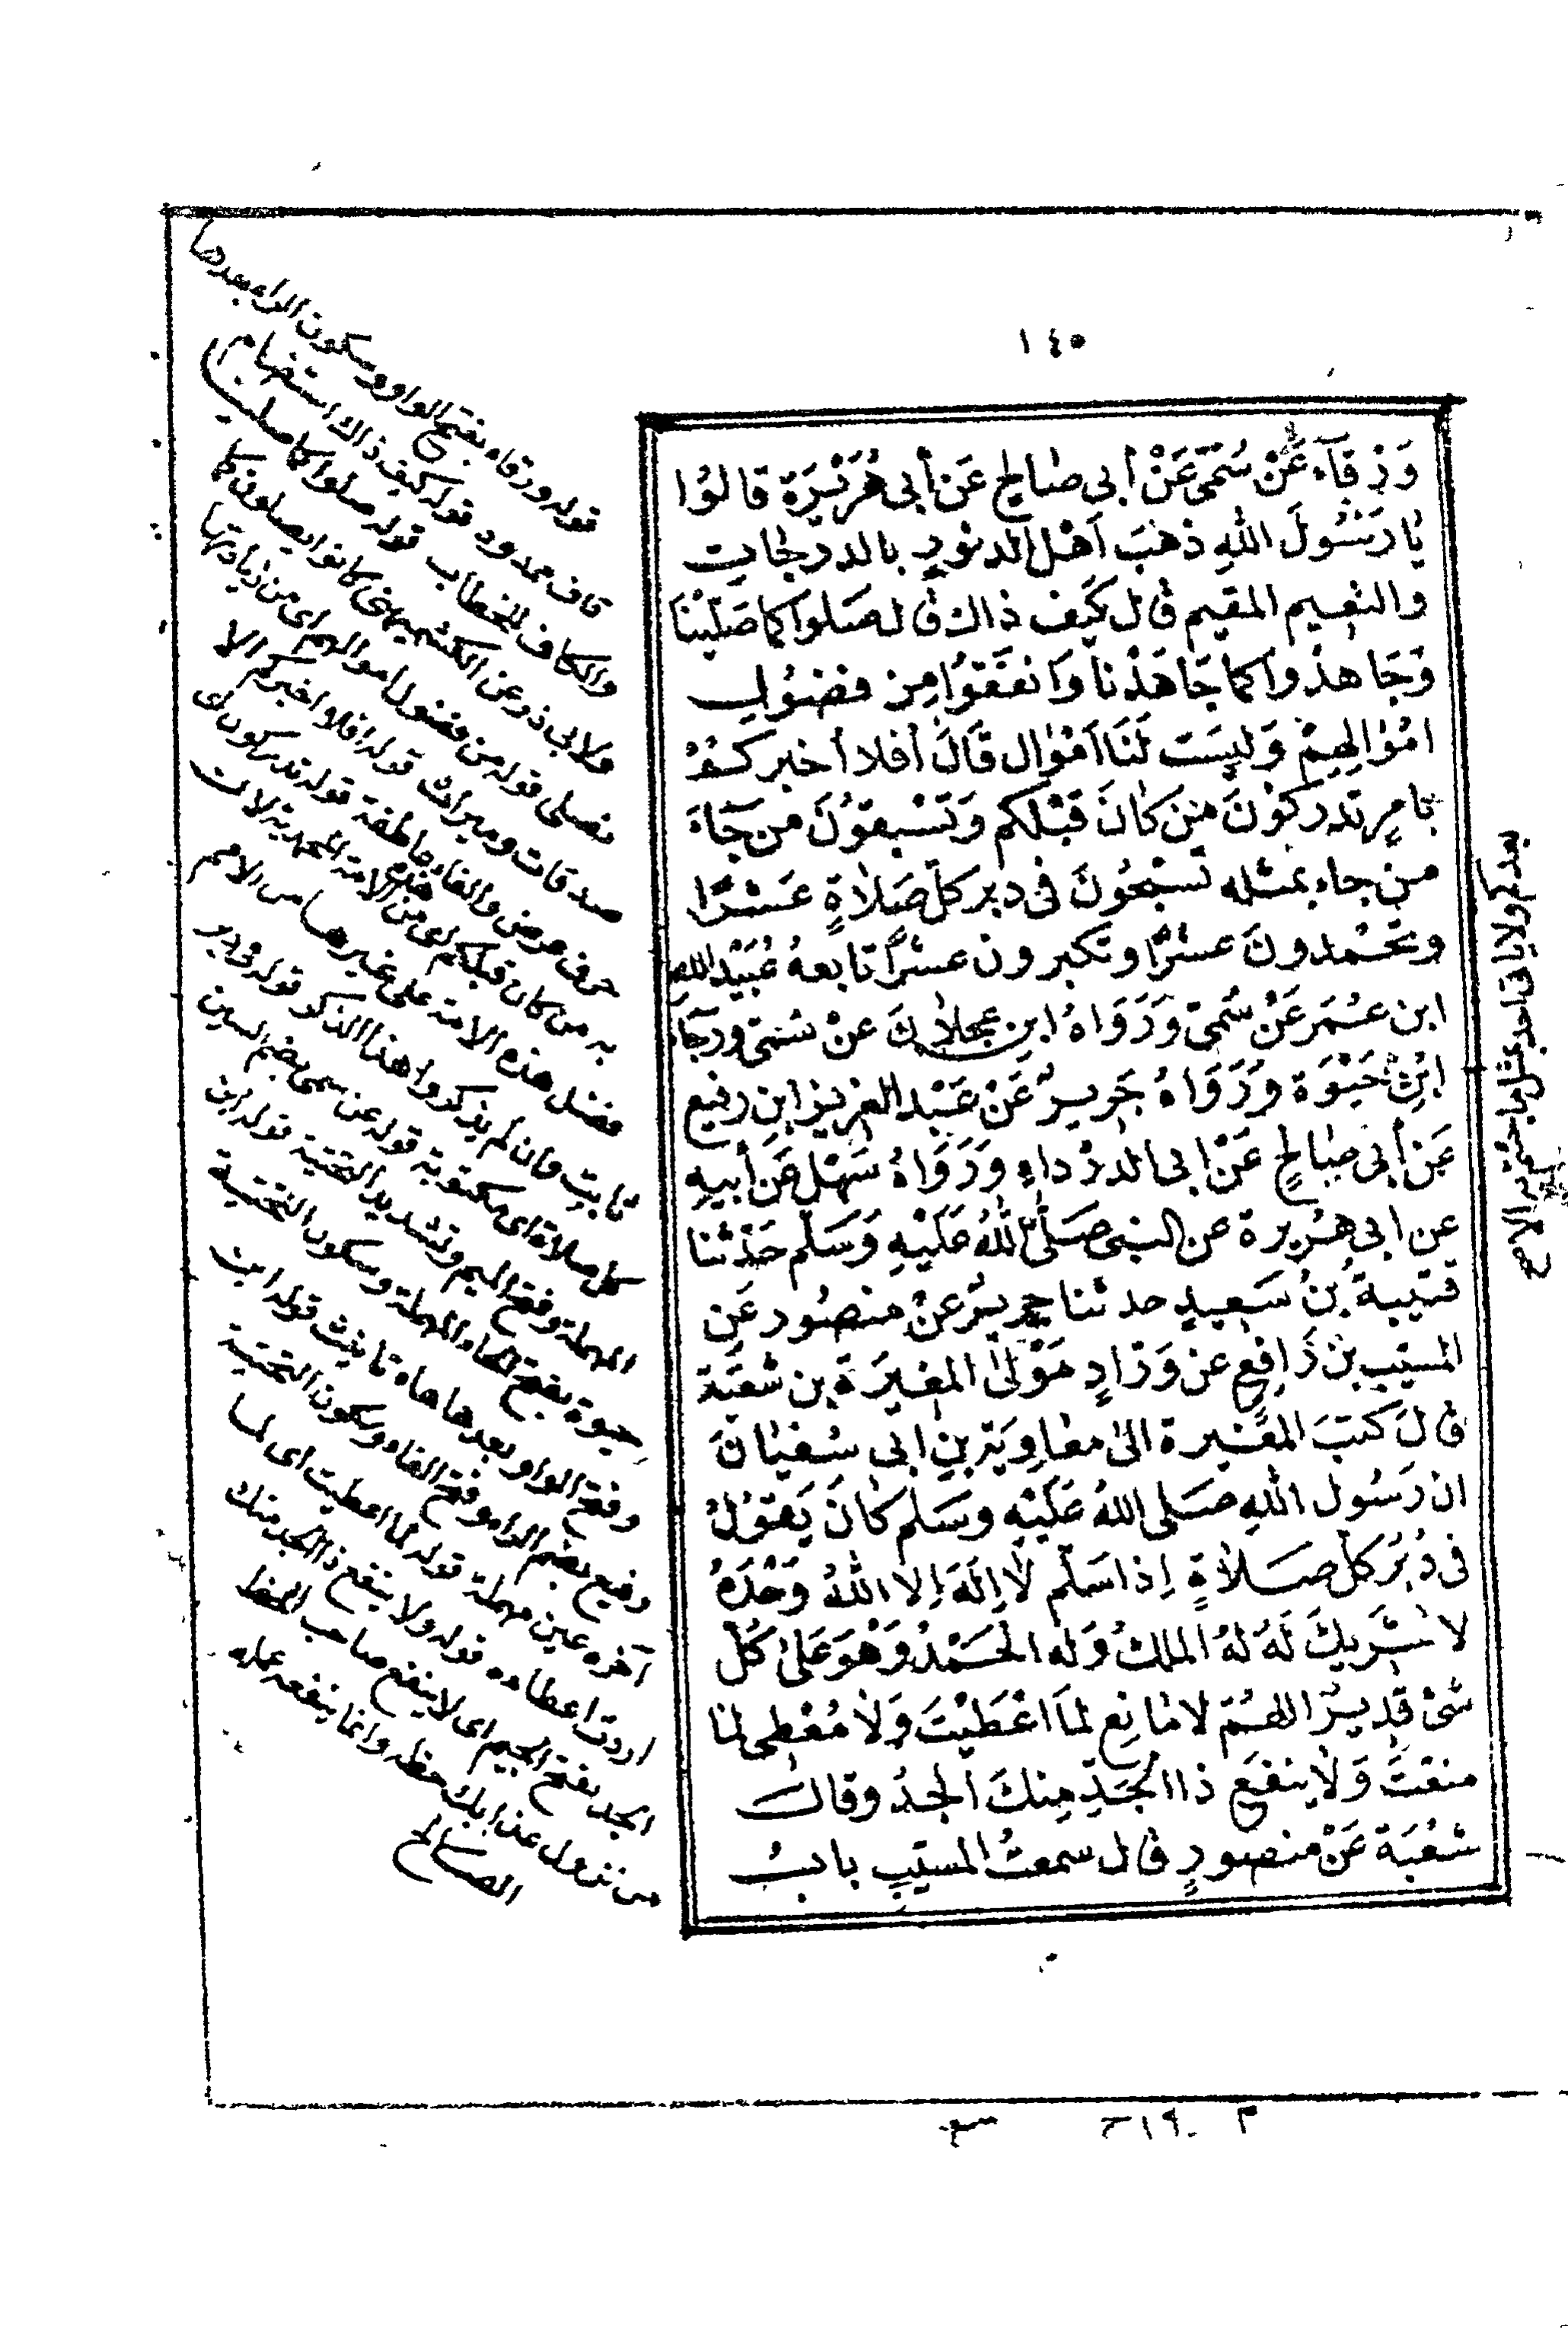 ١٤٥
وَرْقَآءَ عَنْ سُمَيّ عَنْ أبي صَالِحٍ عَنْ أبي هُرَيْرَة قالوُا
يَا رَسُولَ اللهِ ذهَبَ اَهْل الدثورِ بالدرجاتِ
والنعيم المقيم قال كَيْف ذاك قال صَلوا كما صَلّيْنَا
وَجَاهدُوا كما جَاهَدْنا وَانفَقوُا مِن فضوُلِ
امْوالِهِمْ وَليسَت لَنَا اَمْوَال قَالَ أفلا أخبركُمْ
بامرٍ تدركوُنَ مَنْ كانَ قَبْلكم وَتَسْبِقوُنَ من جَآءَ
من جاء بمثله تُسَبّحُونَ في دبر كلّ صَلاةٍ عَشْرًا
وتحْمدونَ عشرًا وتكبرون عشرًا تابعهُ عُبَيْد الله
ابن عُمَر عَنْ سُمَيّ وَرَوَاهُ ابن عجلانَ عنْ سُمَيّ ورجَاء
ابنُ حَيْوَة وَرَوَاهُ جَرِيرٌ عَنْ عَبْد العَزِيز ابنِ رفيع
عَنْ أبي صَالحٍ عَنْ ابى الدرْداءِ وَرَوَاهُ سُهَيْل عَن أَبيهِ
عن ابى هُرَيرة عن النبي صَلّى اللهُ عَلَيْهِ وَسَلّم حَدّثنا
قتيبةُ بنُ سَعيدٍ حدثنا جَرِيرٌ عَنْ منصُور عَنِ
المُسَيّب بن رَافِعٍ عن وَرّادٍ مَوْلىَ المغِيَرة بن شعْبَة
قالَ كتبَ المغيرة الىَ معَاوِيَة بنِ ابى سُفيَانَ
ان رَسُول اللهِ صَلى اللهُ عَلَيْهِ وسَلم كانَ يَقوُلُ
في دُبُر كل صَلاةٍ اِذا سَلّم لا اِلهَ اِلا اللهُ وَحْدَهُ
لا شَرِيكَ لَهُ لهُ الملكُ وَله الحَمْدُ وَهْوَ عَلىَ كُلّ
شئ قدِيرٌ اللهُمّ لا مَانِع لمَا اعْطَيْتَ وَلا مُعْطِى لما
منعْتَ وَلا ينفَع ذا الجَدِّ مِنكَ الجدُّ وقالَ
شعْبَة عَنْ منصورٍ قال سمعتُ المسَيّب بابُ
قوله ورقاء بفتح الواو وسكون الراء بعدها
قاف ممدود قوله كيف ذاك استفهام
والكاف للخطاب قوله صلوا كما صلينا
ولابى ذر عن الكشميهنى كانوا يصلون كما
نصلى قوله من فضول اموالهم اى من زيادتها
صدقات وميراث قوله افلا اخبركم الا
حرف عرض والفاء عاطفة قوله تدركون اى
به من كان قبلكم اى من الامة المحمدية لان
فضل هذه الامة على غيرها من الامم
ثابت وان لم يذكروا هذا الذكر قوله في دبر
كل صلاة اى مكتوبة قوله عن سمى بضم السين
المهملة وفتح الميم وتشديد التحتية قوله ابن
حيوة بفتح الحاء المهملة وسكون التحتية
وفتح الواو بعدها هاء تانيث قوله ابن
رفيع بضم الراء وفتح الفاء وسكون التحتية
آخره عين مهملة قوله لما اعطيت اى لما
اردت اعطاءه قوله ولا ينفع ذا الجد منك
الجد بفتح الجيم اى لا ينفع صاحب الحظ
من نزول عذابك حظه وانما ينفعه عمله
الصالح